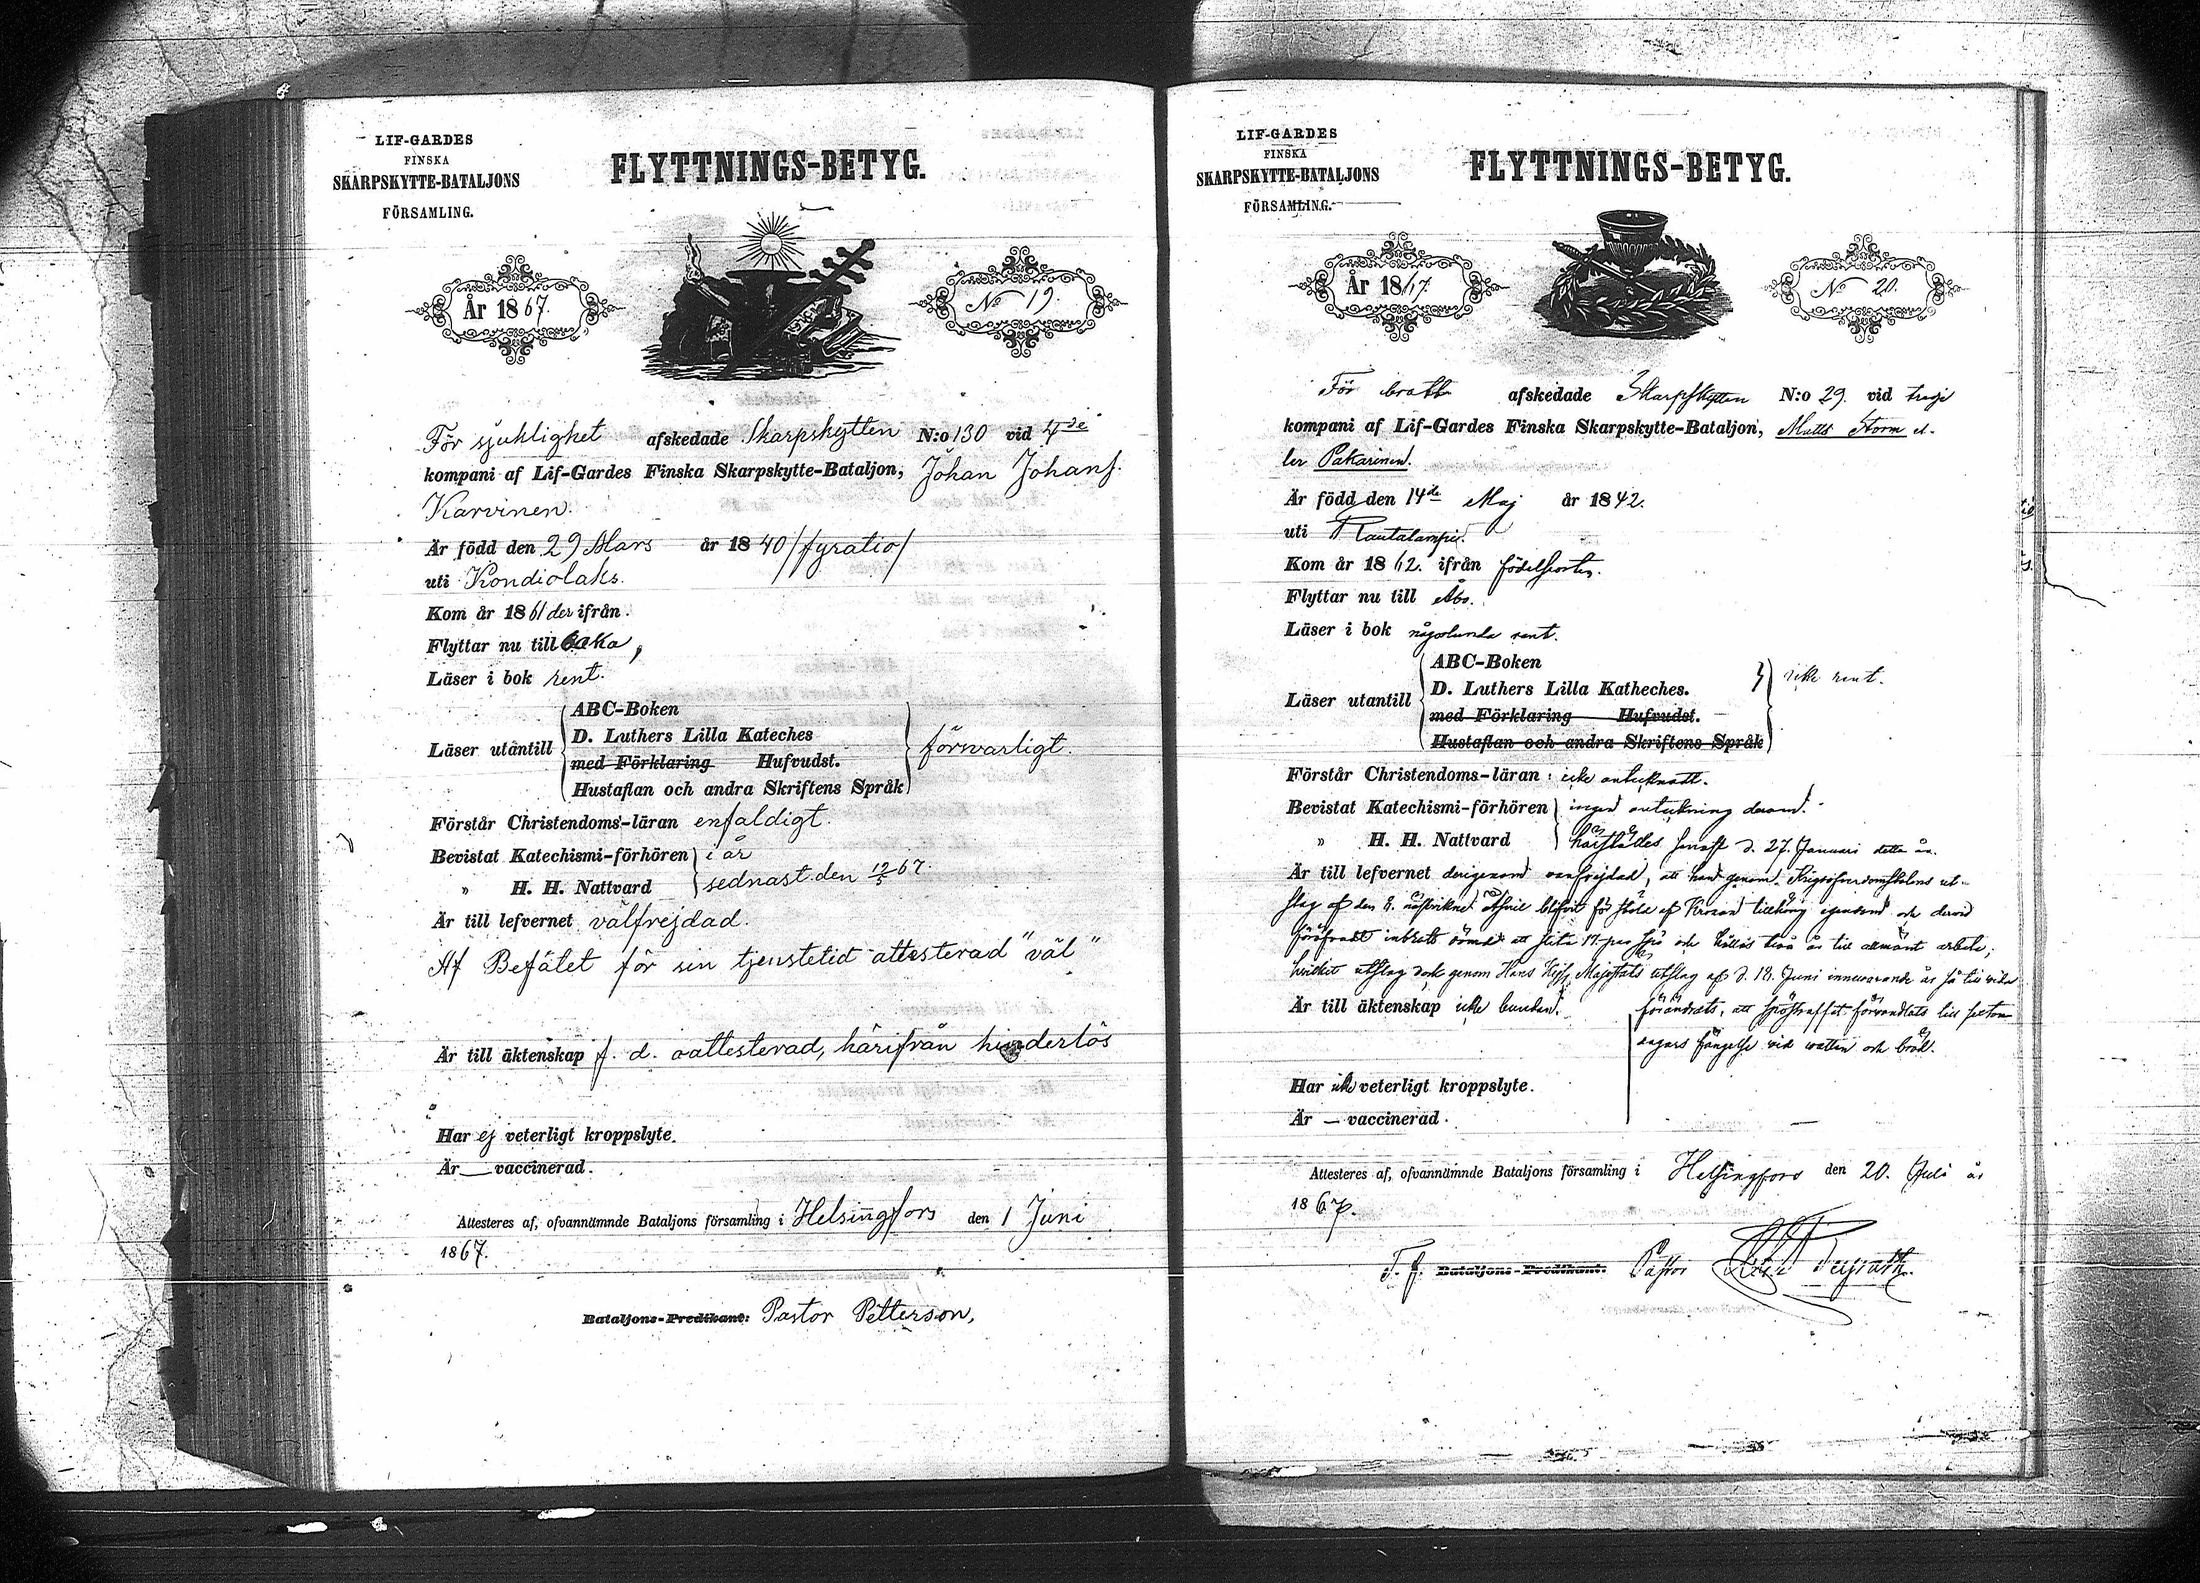 LIF-GARDES
FINSKA
SKARPSKYTTE-BATALJONS
FÖRSAMLING.
FLYTTNINGS-BETYG.
År 1867.
No 19.
För sjuklighet afskedade Skarpskytten N:o 130 vid 4de
kompani af Lif-Gardes Finska Skarpskytte-Bataljon, Johan Johans.
Karvinen.
Är född den 29 Mars år 1840 /fyratio/
uti Kondiolaks.
Kom år 1861 der ifrån.
Flyttar nu till
Läser i bok rent.
Läser utantill
ABC-Boken
D. Luthers Lilla Kateches
med Förklaring Hufvudst.
Hustaflan och andra Skriftens Språk
försvarligt.
Förstår Christendoms-läran enfaldigt.
Bevistat Katechismi-förhören i år
" H. H. Nattvard sednast den 12/5 67.
Är till lefvernet välfrejdad.
Af Befälet för sin tjenstetid attesterad "väl"
Är till äktenskap f. d. oattesterad, härifrån hinderlös
Har ej veterligt kroppslyte.
Är — vaccinerad.
Attesteres af, ofvannämnde Bataljons församling i Helsingfors den 1 Juni
1867.
Bataljons-Predikant: Pastor Petterson,
LIF-GARDES
FINSKA
SKARPSKYTTE-BATALJONS
FÖRSAMLING.
FLYTTNINGS-BETYG.
År 1867.
No 20.
För brott afskedade Skarpskytten N:o 29. vid tredje
kompani af Lif-Gardes Finska Skarpskytte-Bataljon, Matts Storm el-
ler Pakarinen.
Är född den 14de Maj år 1842.
uti Rautalampi.
Kom år 1862. ifrån födelseorten.
Flyttar nu till Åbo.
Läser i bok någorlunda rent.
Läser utantill
ABC-Boken
D. Luthers Lilla Katheches.
med Förklaring Hufvudst.
Hustaflan och andra Skriftens Språk
icke rent.
Förstår Christendoms-läran: icke antecknadt.
Bevistat Katechismi-förhören ingen anteckning derom.
" H. H. Nattvard senast d. 27. Januari detta år.
Är till lefvernet derigenom vanfrejdad, att han genom Krigsöfverdomstolens ut-
slag af den 8. blifvit för stöld af Kronan tillhörig egendom och dervid
inbrott dömd att slita 17. par spö och hållas två år till allmänt arbete;
hvilket utslag dock genom Hans Kejs. Majestäts utslag af d. 18. Juni innevarande år så till vida
förändrats, att spöstraffet förvandlats till fjorton
dagars fängelse vid vatten och bröd.
Är till äktenskap icke bunden.
Har icke veterligt kroppslyte.
Är — vaccinerad.
Attesteres af, ofvannämnde Bataljons församling i Helsingfors den 20. Juli år
1867.
T. f. Bataljons-Predikant: Pastor